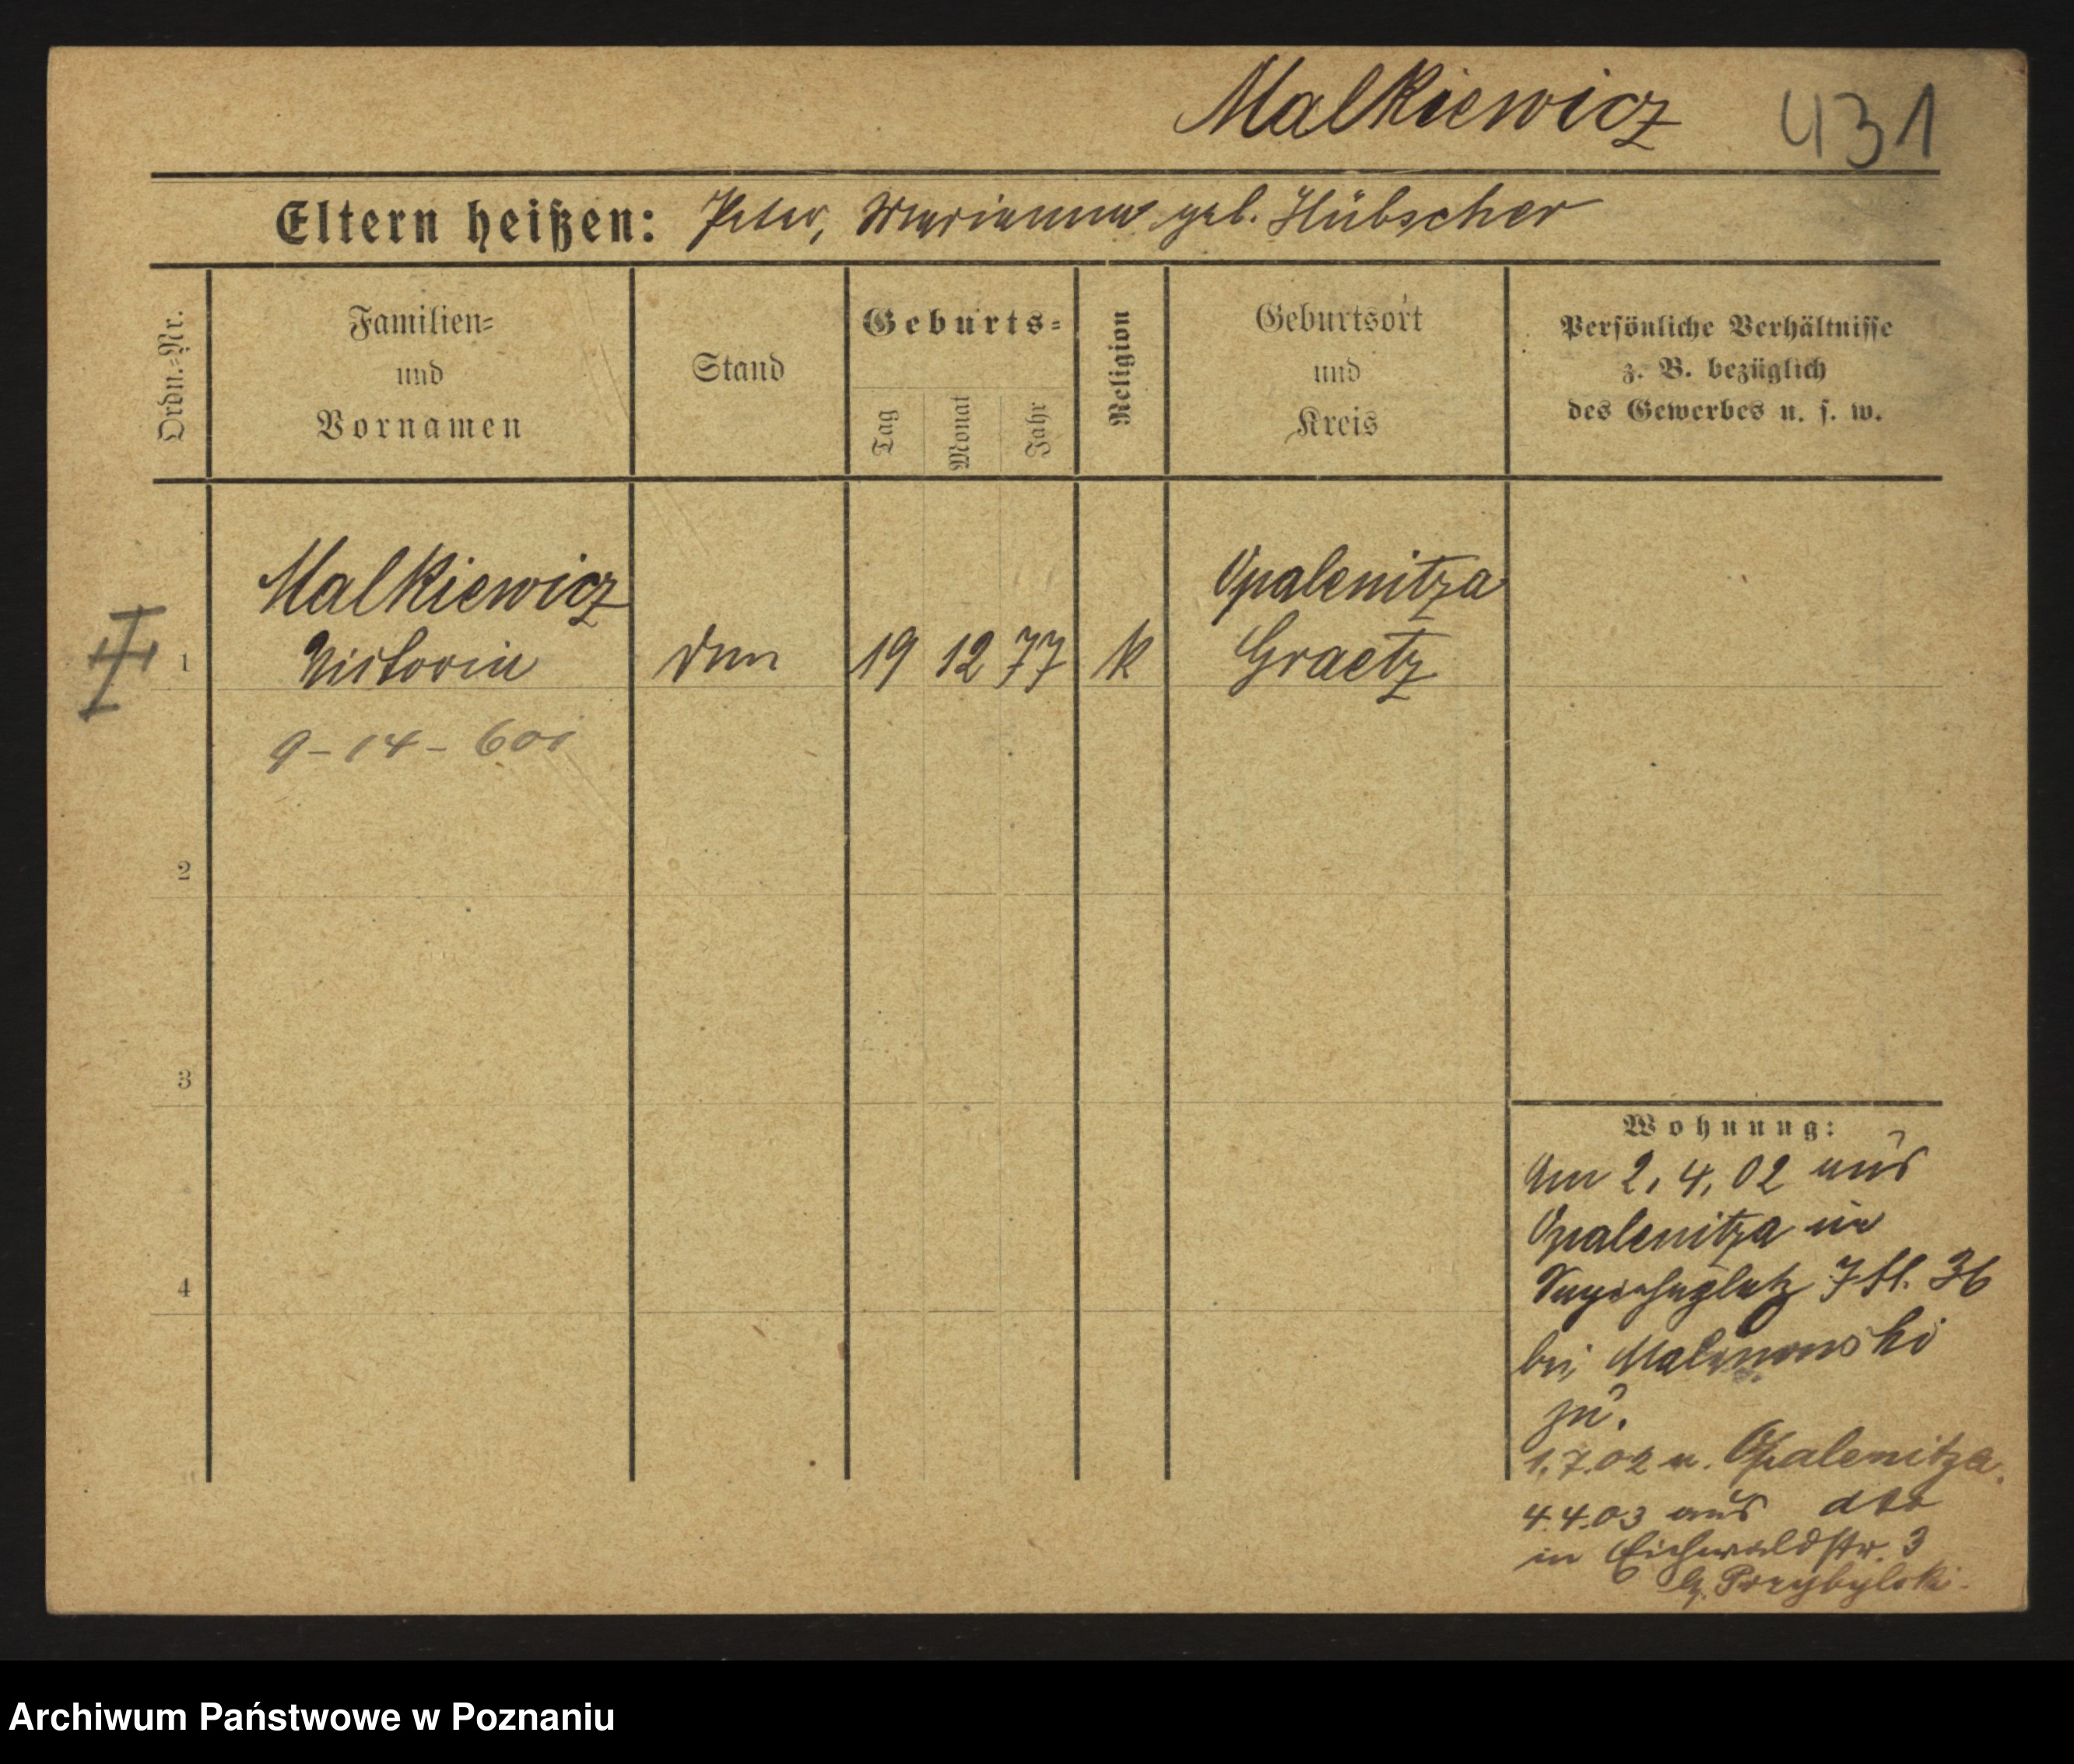 Malkiewicz 431
Eltern heißen: Peter, Marianna geb. Hübscher
Ordn.-Nr.
Familien-
und
Vornamen
Stand
Geburts-
Tag
Monat
Jahr
Religion
Geburtsort
und
Kreis
Persönliche Verhältnisse
z. B. bezüglich
des Gewerbes u. s. w.
Malkiewicz
Opalenitza
1 Victoria 19 12 77 k Graetz
9-14-601
2
3
4
Wohnung:
Am 2. 4. 02 aus
Opalenitza in
Sapiehaplatz 7 36
bei Malinowski
zu.
1.7.02 n. Opalenitza.
4.4.03 aus dto
in Eichwaldstr. 3
b. Przybylski.
Archiwum Państwowe w Poznaniu